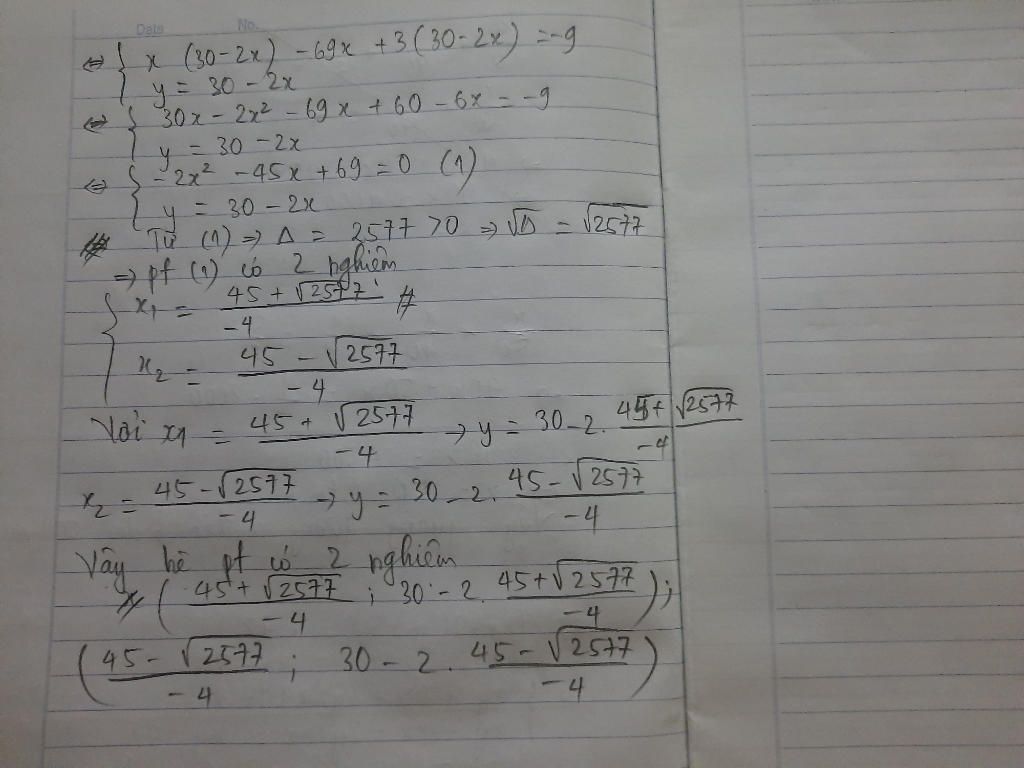 Date No.
⇔ { x (30-2x) - 69x + 3(30-2x) = -9
y = 30 - 2x
⇔ { 30x - 2x² - 69x + 60 - 6x = -9
y = 30 - 2x
⇔ { -2x² - 45x + 69 = 0 (1)
y = 30 - 2x
Từ (1) ⇒ Δ = 2577 > 0 ⇒ √Δ = √2577
⇒ pt (1) có 2 nghiệm
{ x₁ = (45 + √2577)/-4
x₂ = (45 - √2577)/-4
Với x₁ = (45 + √2577)/-4 → y = 30 - 2. (45 + √2577)/-4
x₂ = (45 - √2577)/-4 → y = 30 - 2. (45 - √2577)/-4
Vậy hê pt có 2 nghiệm
( (45 + √2577)/-4 ; 30 - 2. (45 + √2577)/-4 );
( (45 - √2577)/-4 ; 30 - 2. (45 - √2577)/-4 )